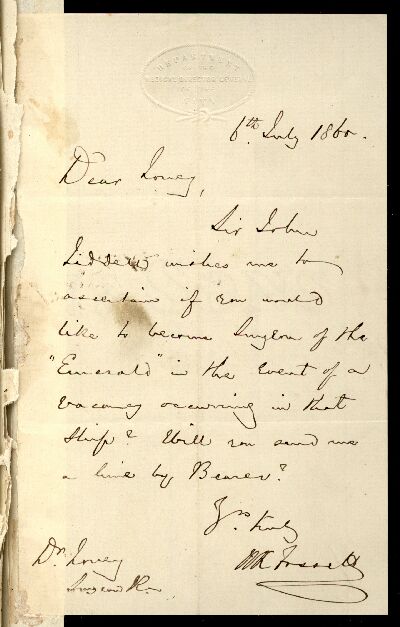 DEPARTMENT
OF THE
MEDICAL DIRECTOR GENERAL
OF THE
NAVY
6th July 1860.
Dear Loney,
Sir John
Liddell wishes me to
ascertain if you would
like to become Surgeon of the
"Emerald" in the event of a
vacancy occurring in that
Ship? Will you send me
a line by Bearer?
Yrs truly
Dr. Loney
Surgeon R.N.